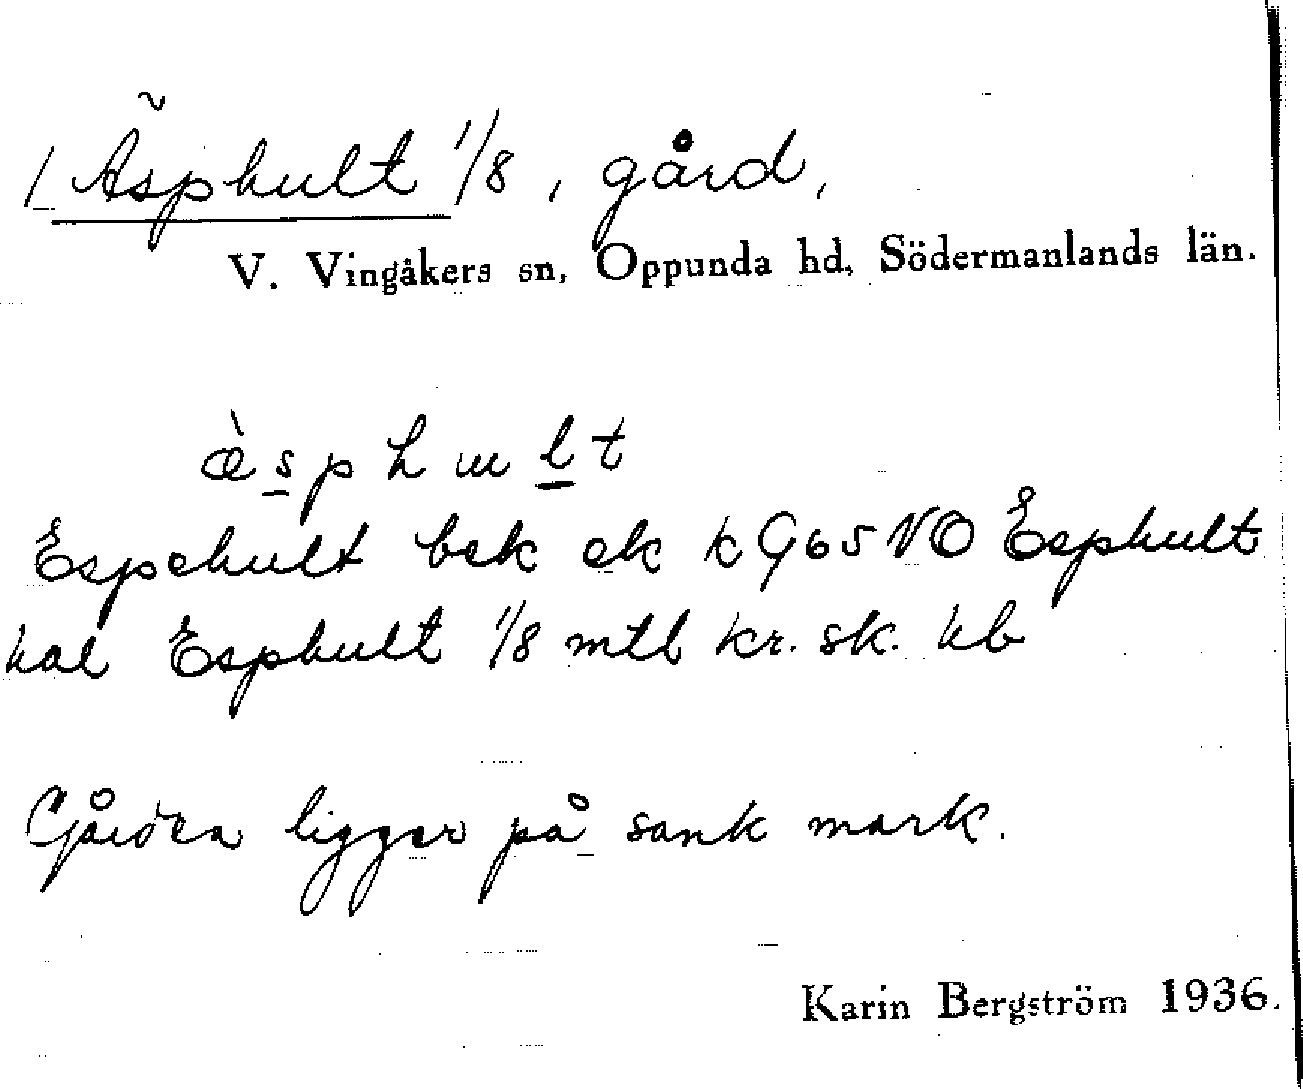 1 Äsphult 1/8, gård,
V. Vingåkers sn, Oppunda hd, Södermanlands län.
æ̀sphult
Espehult bek ek k Q65 NO Esphult
hal Esphult 1/8 mtl kr. sk. hb
Gården ligger på sank mark.
Karin Bergström 1936.